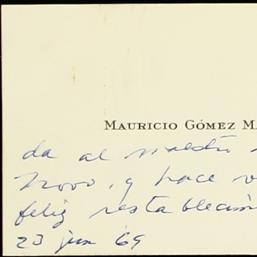 MAURICIO GÓMEZ M
da al maestro
Novo, y hace v
feliz restablecim
23 jun 69